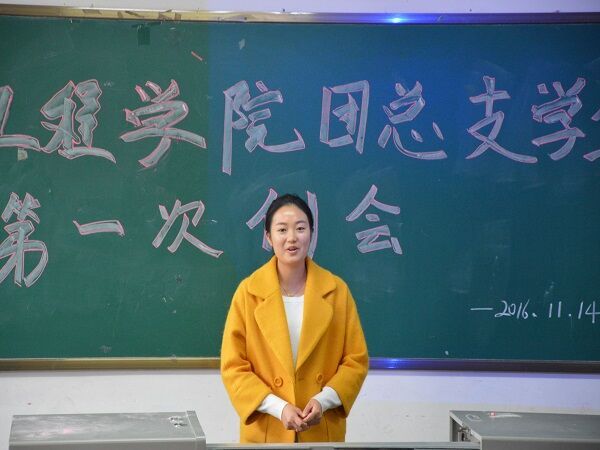 工程学院团总支学
第一次例会
—2016.11.14